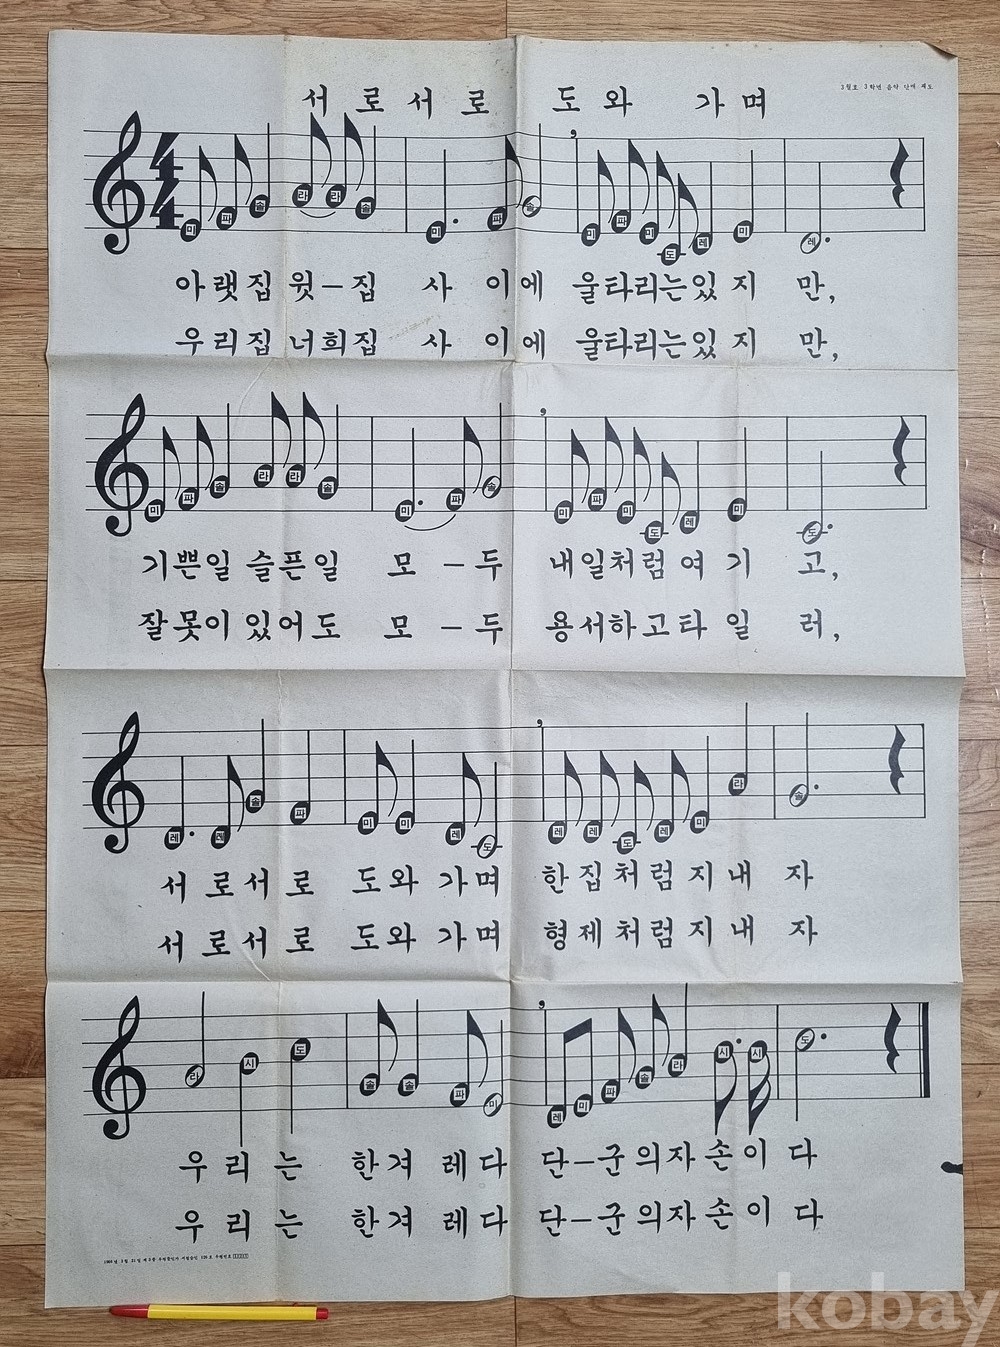 서로서로 도와 가며
3월호 3학년 음악 단에 괘도
4
4
미 파 솔 라 라 솔 미 파 솔 미 파 미 도 레 미 레
아랫집 윗-집 사 이에 울타리는있지 만,
우리집 너희집 사 이에 울타리는있지 만,
미 파 솔 라 라 솔 미 파 솔 미 파 미 도 레 미 도
기쁜일 슬픈일 모-두 내일처럼여기 고,
잘못이 있어도 모-두 용서하고타일 러,
레 레 솔 파 미 미 레 도 레 레 도 레 미 라 솔
서로서로 도와 가며 한집처럼지내 자
서로서로 도와 가며 형제처럼지내 자
라 시 도 솔 솔 파 미 레 미 파 솔 라 시 시 도
우리는 한겨레다 단-군의자손이다
우리는 한겨레다 단-군의자손이다
kobay